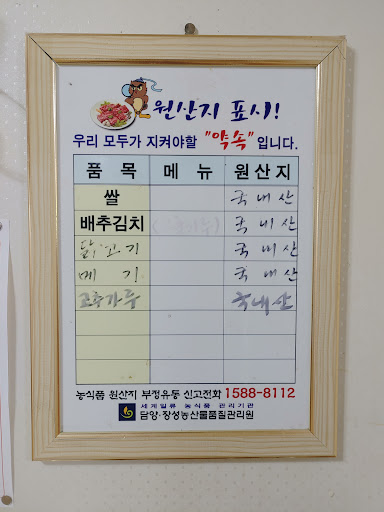 원산지 표시!
우리 모두가 지켜야할 "약속"입니다.
품 목 메 뉴 원 산 지
쌀 국내산
배추김치 국내산
닭고기 국내산
메기 국내산
고추가루 국내산
농식품 원산지 부정유통 신고전화 1588-8112
세계일류 농식품 관리기관
담양·장성농산물품질관리원